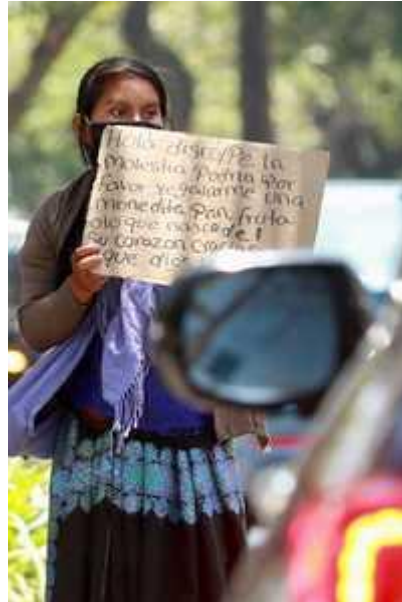 Hola disculpe la
molestia Podria Por
favor regalarme una
monedita Pan, fruta
o lo que nasca de
su corazon Gracias
que dios